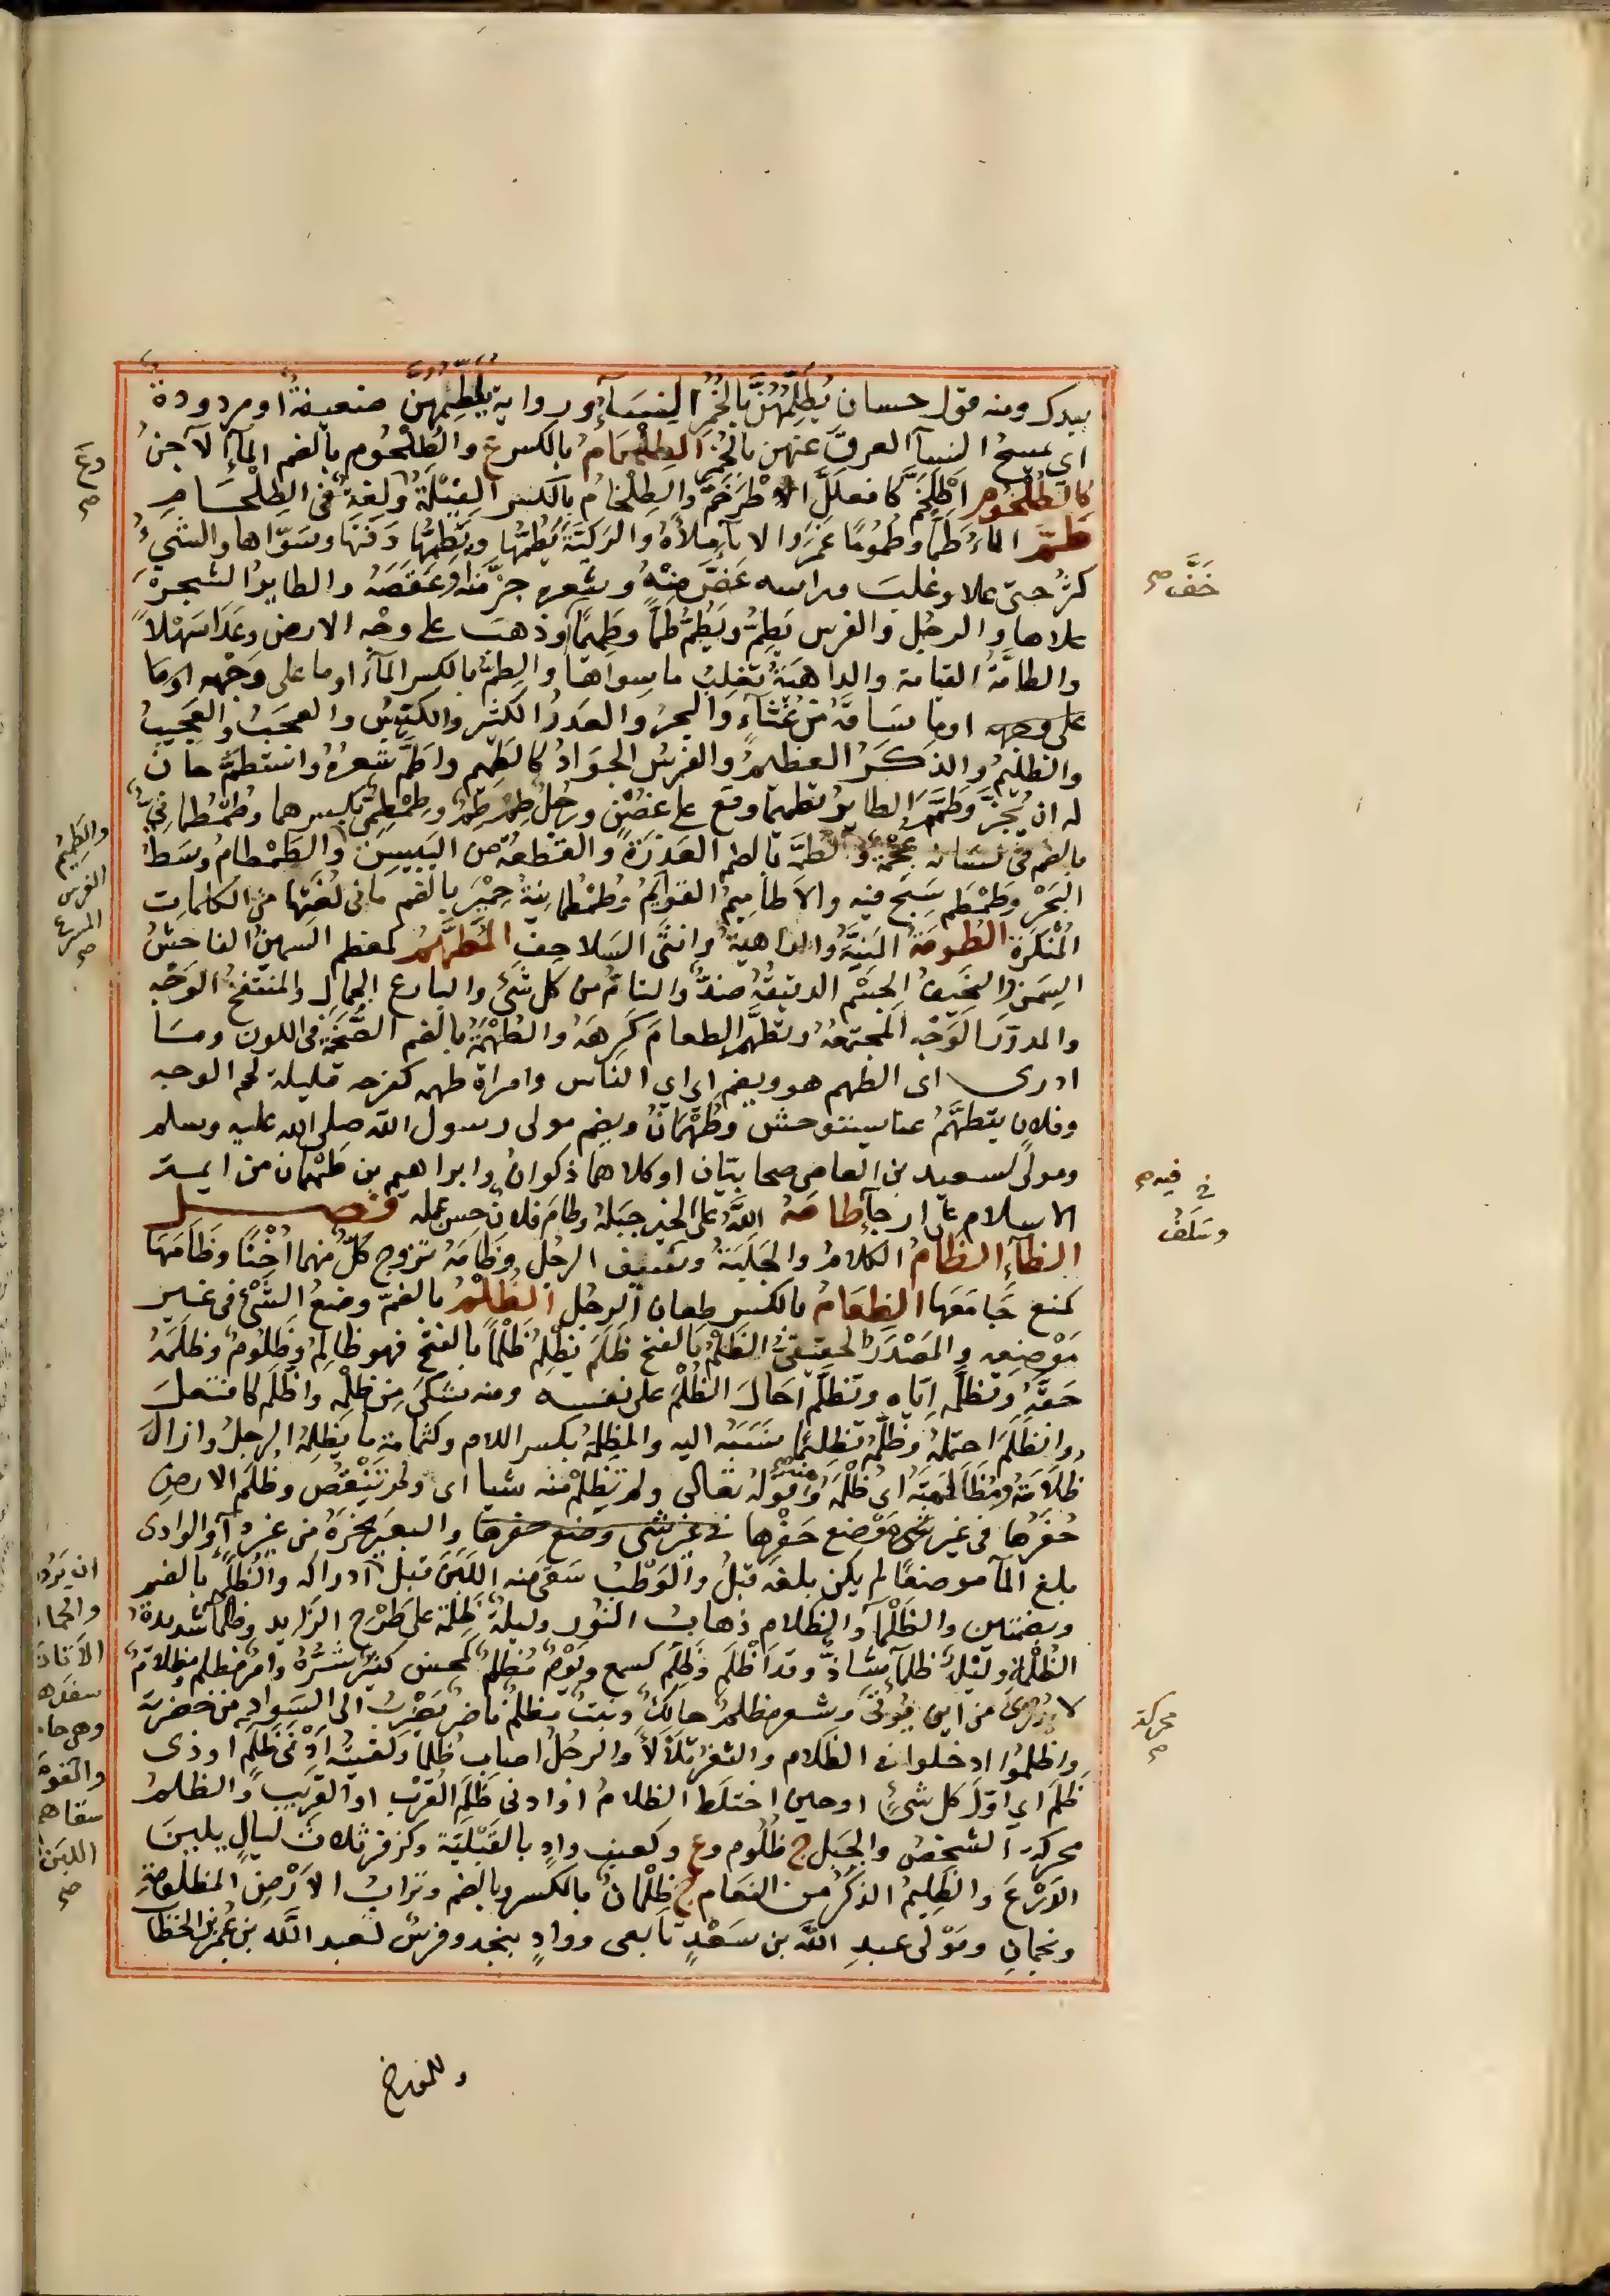 بيدك ومنه قول حسان يُطَلِّمُهُنَّ بالخُمُرِ النِسَآءُ ورواية يُلَطِّمُهُنَّ ضعيفةٌ او مردودة
اي يمسحُ النسآ العرقَ عنهن بالخُمُرِ الطِلْحَامُ بالكسرع والطُلْحُوم بالضم المآءُ الآجنُ
كالطُلْخُوم اطْلَخَمَّ كافعلَلَّ اطْرَخَمَّ والطِلْخامُ بالكسر الفِيْلَةُ ولغةٌ في الطِلْحَامِ
طَمَّ الماءُ طَمًا وطُمُومًا غَمَرَ والاناءَ مَلأَهُ والرَكيّةَ يَطُمُّها ويَطِمُّها دَفَنَها وسَوّاها والشَيءُ
كثُرَ حتى علا وغلبَ وراسه غَضَّ منهُ وشعره جزَّه او عَقَصَهُ والطايرُ الشجرةَ
علاها والرجُل والفرس يَطِمُّ ويَطُمُّ طَمًّا وطَمِيمًا وذهبَ على وجْهِ الارض وعَدَا سَهْلاً
والطامَّةُ القيامة والداهيَةُ تغلِبُ ماسواها والطِمُّ بالكسر المآءُ او ما على وَجْهِه اوما
على وجهه اوما سَاقَهُ من غُثَآءٍ والبحرُ والعددُ الكثير والكَيِّسُ والعجَبُ والعَجِيبُ
والظليمُ والذكَرُ العظيمُ والفرسُ الجوَادُ كالطَمِيم واطَمَّ شعرُهُ واستَطَمَّ حانَ
له ان يُجَزَّ وطَمَّمَ الطايرُ تطميما وقع على غصْنٍ ورجُلٌ طِمْطِمٌ وطِمْطِمِيٌّ بكسرهما وطُمْطُمانِيٌّ
بالضم في لسانه عُجْمَةٌ والطُمَّة بالضم العَذِرَةُ والقطعةُ من اليَبِيسِ والطَمْطامُ وسَطُ
البَحْرِ وطَمْطَمَ سَبَحَ فيه والاَطامِيمُ القوايمُ وطُمْطُمانِيَةُ حِمْيَرَ بالضم ما في لُغَتِها من الكلماتِ
المُنْكَرَةِ الطُومَةُ المَنِيَّةُ والداهيةُ وانثَى السَلاحِفِ المُطَهَّمُ كمعظم السمينُ الفاحِشُ
السِمَن والنحيفُ الجِسْمِ الدقيقُهُ ضدٌّ والتامُّ من كل شَئٍ والبارع الجمالِ والمنتفخُ الوَجْهِ
والمدوّرُ الوَجْهِ المجتمِعُهُ وتطهَّم الطعامَ كَرِهَهُ والطُهْمَةُ بالضم الصُحْمَةُ في اللون وما
ادرى اى الطهم هو ويضم اى اي الناس وامراة طهمه كفرحه قليلة لحم الوجه
وفلان يتطهَّمُ عنا يستوحش وطَهْمَانُ ويضم مولى رسول الله صلى الله عليه وسلم
ومولًى لسعيد بن العاصى صحابيّان او كلاهما ذكوانُ وابراهيم بن طَهْمان من ايمة
الاسلام على ارجآءٍ طامَهُ اللهُ على الخير جبَلَهُ وطامَ فلانٌ حسن عمله فصل
الظآءِ الظَامُ الكلامُ والجَلَبَةُ وسَلِفُ الرجُلِ وظَامَهُ تزوج كلٌّ منهما اخْتًا وظَامَهَا
كمنع جَامَعَها الظِعَامُ بالكسر ظِعان الرَحْلِ الظُلْمُ بالضمّ وضعُ الشَيْءِ في غير
مَوْضِعِه والمَصْدَرُ الحقيقىُّ الظَلْمُ بالفتح ظَلَمَ يَظْلِمُ ظَلْمًا بالفتح فهو ظالِمٌ وظَلُومٌ وظَلَمَهُ
حَقَّهُ وتظلَّمه ايّاه وتظلَّمَ احَالَ الظُلْمَ على نفسه ومنه شكَى مِن ظُلْمِه واظَّلَمَ كافتعلَ
وانظَلَمَ احتمَلَهُ وظَلَّمَهُ تَظْلِيمًا نَسَبَهُ اليه والمَظْلِمَةُ بكسر اللام وكثمامة ما يَظْلِمُهُ الرجلُ وارادَ
ظِلَامَهُ ومُظَالَمَتَهُ اى ظُلْمَهُ وَقولُه تعالى ولم تَظْلِمْ منه شيا اى ولم تَنْقُصْ وظَلَمَ الارضَ
حَفَرَها في غير مَوْضِعِ حَفْرِها في غير شى وضع حفرها والبعيرَ نحَرَهُ من غير دآءٍ والوادى
بلغ المآ موضعًا لم يكن بلغه قبلُ والوَطْبَ سَقَى منه اللَبَنَ قبل ادراكه والظُلْمَةُ بالضم
وبضمتين والظَلْمآءُ والظلام ذهابُ النُور وليلةٌ ظَلِمَةٌ على طَرْحِ الزايد وظلمآءُ شديدةُ
الظُلْمَةِ ولَيْلٌ ظلمآءُ شاذٌّ وقد اَظْلَمَ وظَلِمَ كسمع ويَوْمٌ مُظْلِمٌ كمحسن كثيرٌ شَرُّهُ وامرٌ مظلم ومظلامٌ
لا يُدْرَى من اين يُؤْتَى وشعر مظلمٌ حالِكٌ ونبت مظلمٌ ناضرٌ يَضْرِبُ الى السَوادِ من خضرته
واظلَمُوا دخلوا في الظلام والثغرُ تَلَأْلأَ والرجُلُ اصاب ظَلْمًا ولقيتُهُ اَدْنَى ظَلَمٍ اوذى
ظَلَمٍ اي اوّلَ كل شَئٍ او حين اختلَطَ الظلامُ او ادنى ظَلَمٍ القُرْبُ او القَرِيبُ والظَلَمُ
محركة الشخصُ والجَبَل ج ظُلُوم وع وكعِنَبٍ وادٍ بالقَبَلِيّة وكزفر ثلاثُ لَيالٍ يلينَ
الدُرْعَ والظَلِيمُ الذكَرُ من النعام ج ظِلْمانٌ بالكسر وبالضم وترابُ الاَرْضِ المظلومَةِ
ونجمانِ ومَوْلى عبدِ الله بن سَعْدٍ تابعى ووادٍ بنجد وفرسٌ لعبد الله بن عُمَرَ بن الخطاب
وع صح
والطَمِيمُ
الفرس
المسرع
صح
خَفَّ صح
في فيه صح
وسَلَفُ
محركة
صح
وللمورخ